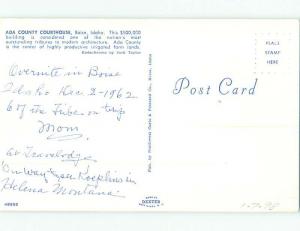 ADA COUNTY COURTHOUSE, Boise, Idaho. This $500,000
building is considered one of the nation's most
outstanding tributes to modern architecture. Ada County
is the center of highly productive irrigated farm lands.
Kodachrome by Herb Taylor
PLACE
STAMP
HERE
Post Card
Overnite in Boise
Idaho Dec 2-1962
6 of the Tribe on trip
Mom
at Travelodge
On way
in
Helena Montana
DEXTER
1-7-98